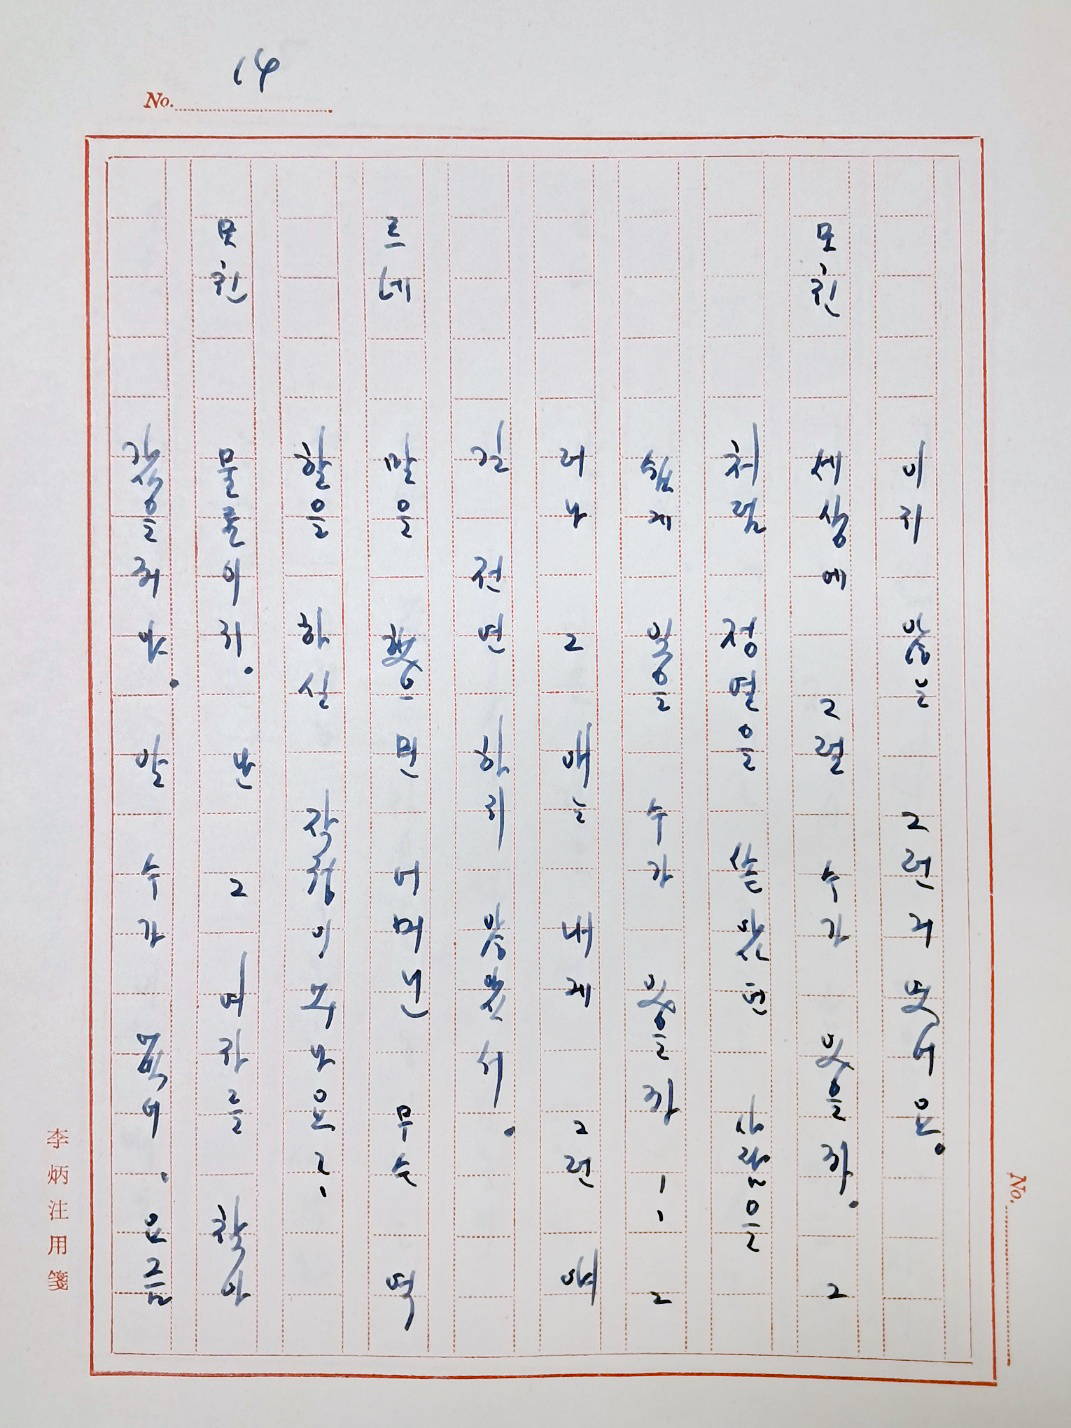 No. 14
이지 않은 그런거였어요.
모친 세상에 그럴 수가 있을까. 그
처럼 정열을 쏟았던 사람을
쉽게 잊을 수가 있을까!! 그
러나 그 애는 내게 그런 얘
길 전연 하지 않았서.
르네 말을 했으면 어머닌 무슨 역
할을 하실 작정이 나요?
모친 물론이지. 난 그 여자를 찾아
갔을 거야. 알 수가 없어. 요즘
李炳注用箋
No.